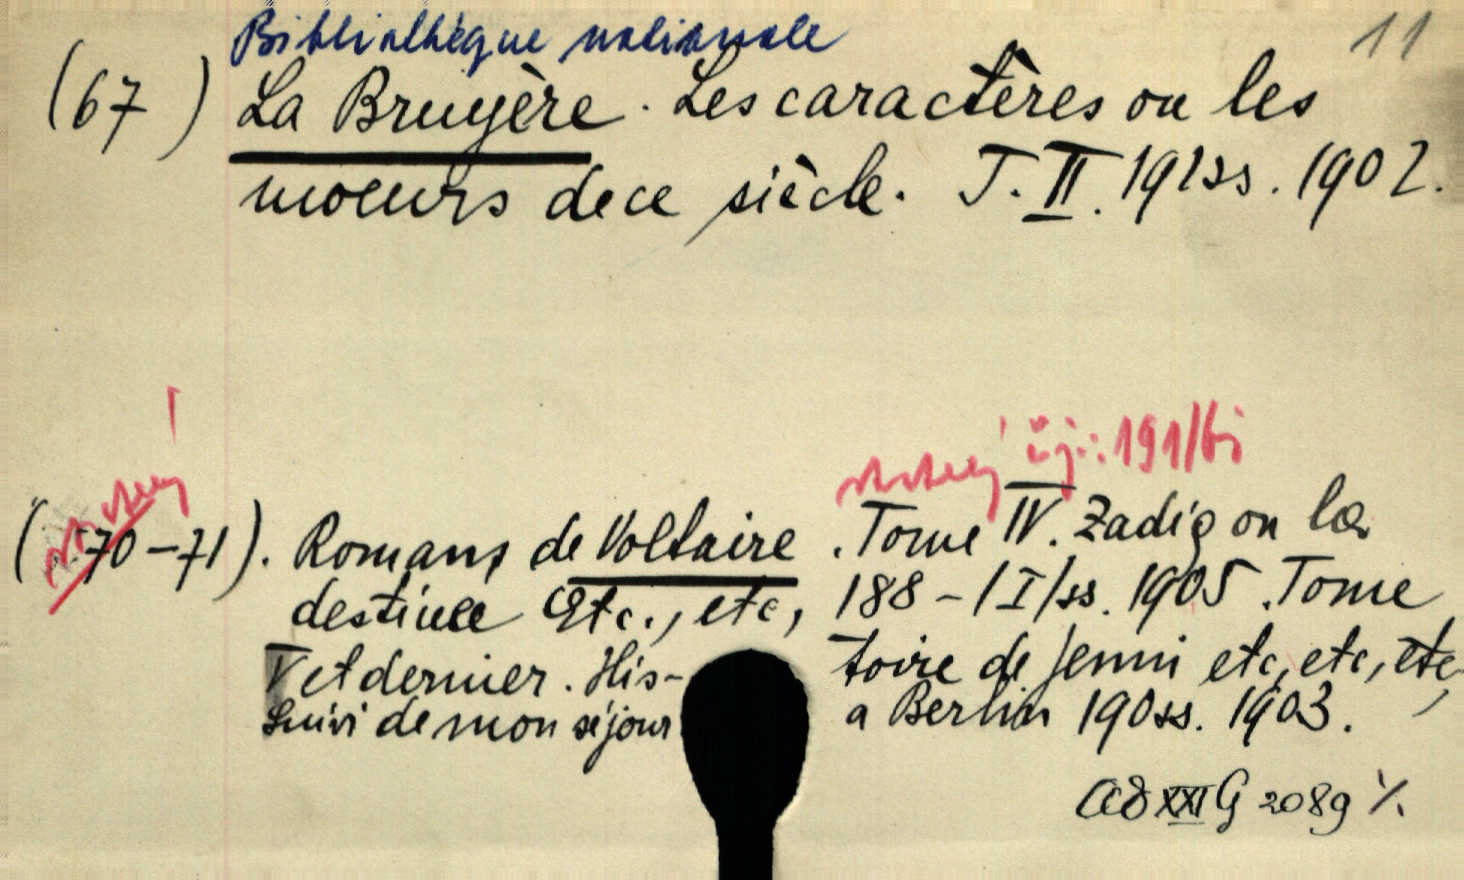 Bibliothèque nationale
11
(67) La Bruyère. Les caractères ou les
moeurs de ce siècle. T. II. 191ss. 1902.
új: 191/65
(70-71). Romans de Voltaire. Tome IV. Zadig ou la
destinee Etc., etc, 188-/I/ss. 1905. Tome
V et dernier. His- toire de Jenni etc, etc, etc,
suivi de mon séjour a Berlin 190ss. 1903.
XXI G 2089 %